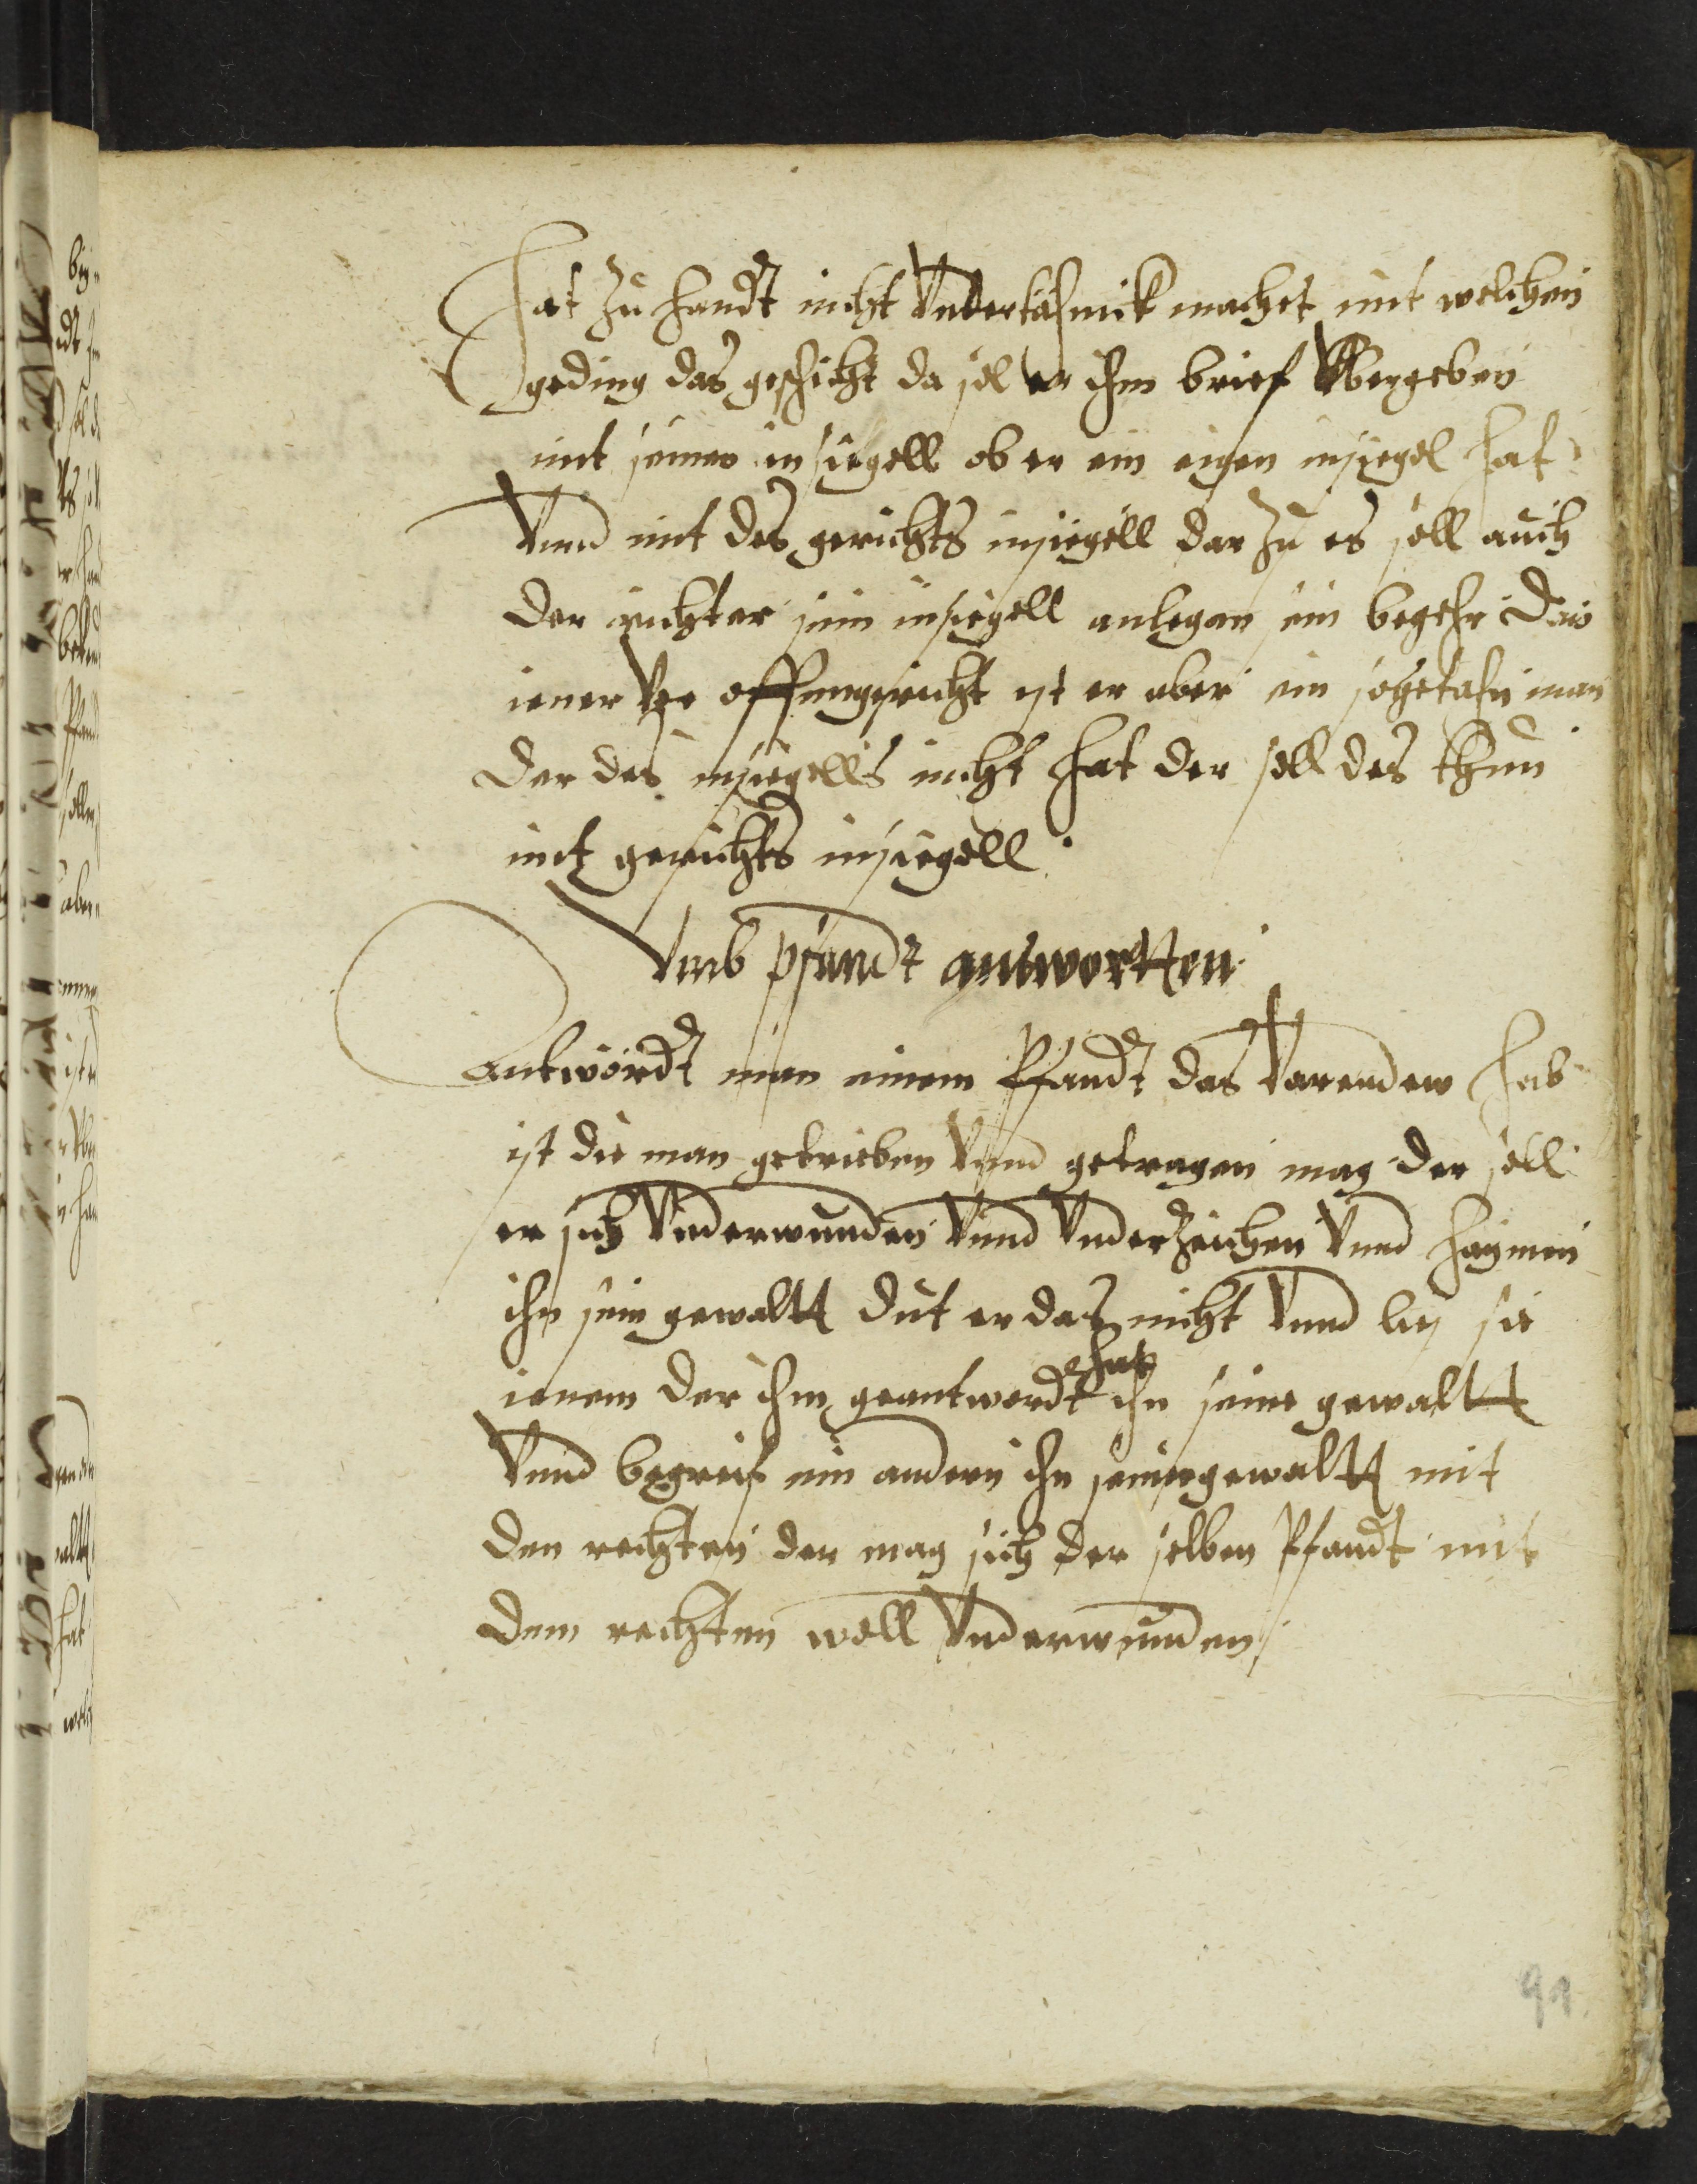 Hat zu handt nicht Undertahnick machet mit welchen
geding das geschicht da sol er ihm brief Vbergeben
mit seinen insiegell ob er ein eigen insiegel hat
Vnnd mit des gerichts insiegell dar zu es soll auch
der richter sein insiegell anlegen sein begehr das
iener Vor offengericht ist er aber ein sogetahn man
der des insiegells nicht hat der soll des thun
mit gerichts insiegell
Vmb pfandt antwortten
Antwordt man einem Pfandt das Varendew hab
ist die man getrieben Vnnd getragen mag der soll
er sich Vnderwunden Vnnd Vnderzeichen Vnnd haymen
ihn sein gewaltt dut er das nicht Vnnd liz sie
ienem der ihm geantwordt hat ihn seine gewaltt
Vnnd begreif ein andern ihn seiner gewaltt mit
den rechten der mag sich der selben Pfandt mit
dem rechten woll Vnderwunden
91